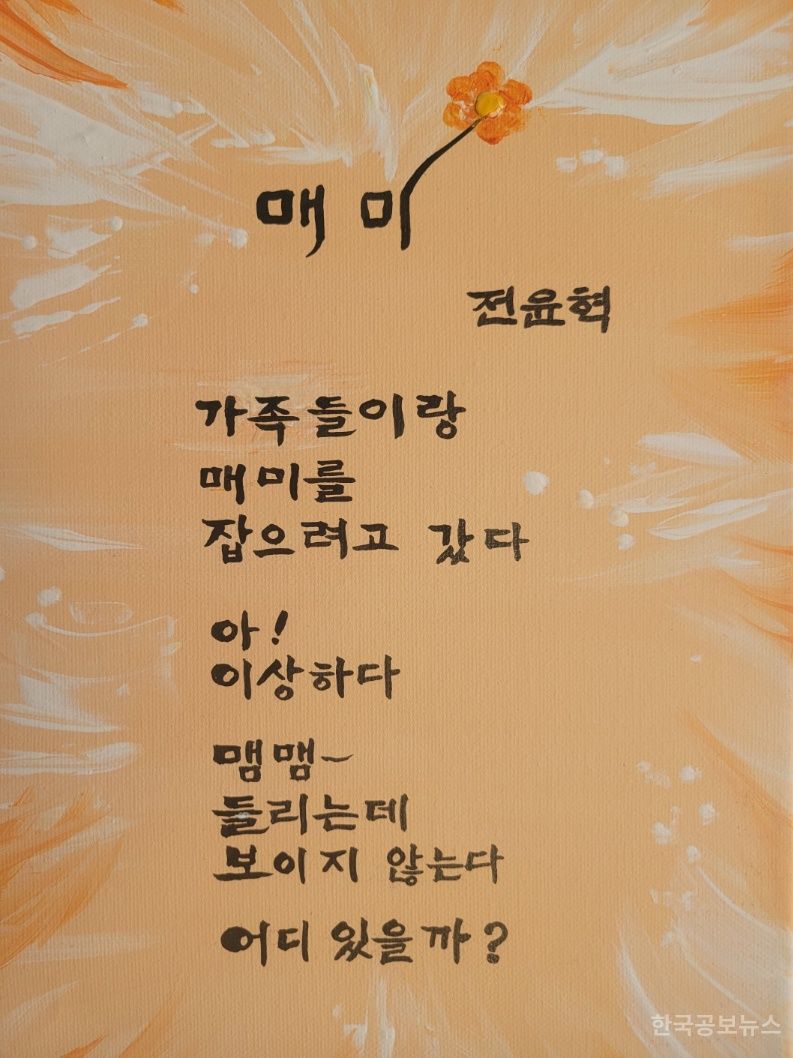 매미
전윤혁
가족들이랑
매미를
잡으려고 갔다
아!
이상하다
맴맴~
들리는데
보이지 않는다
어디 있을까?
한국공보뉴스